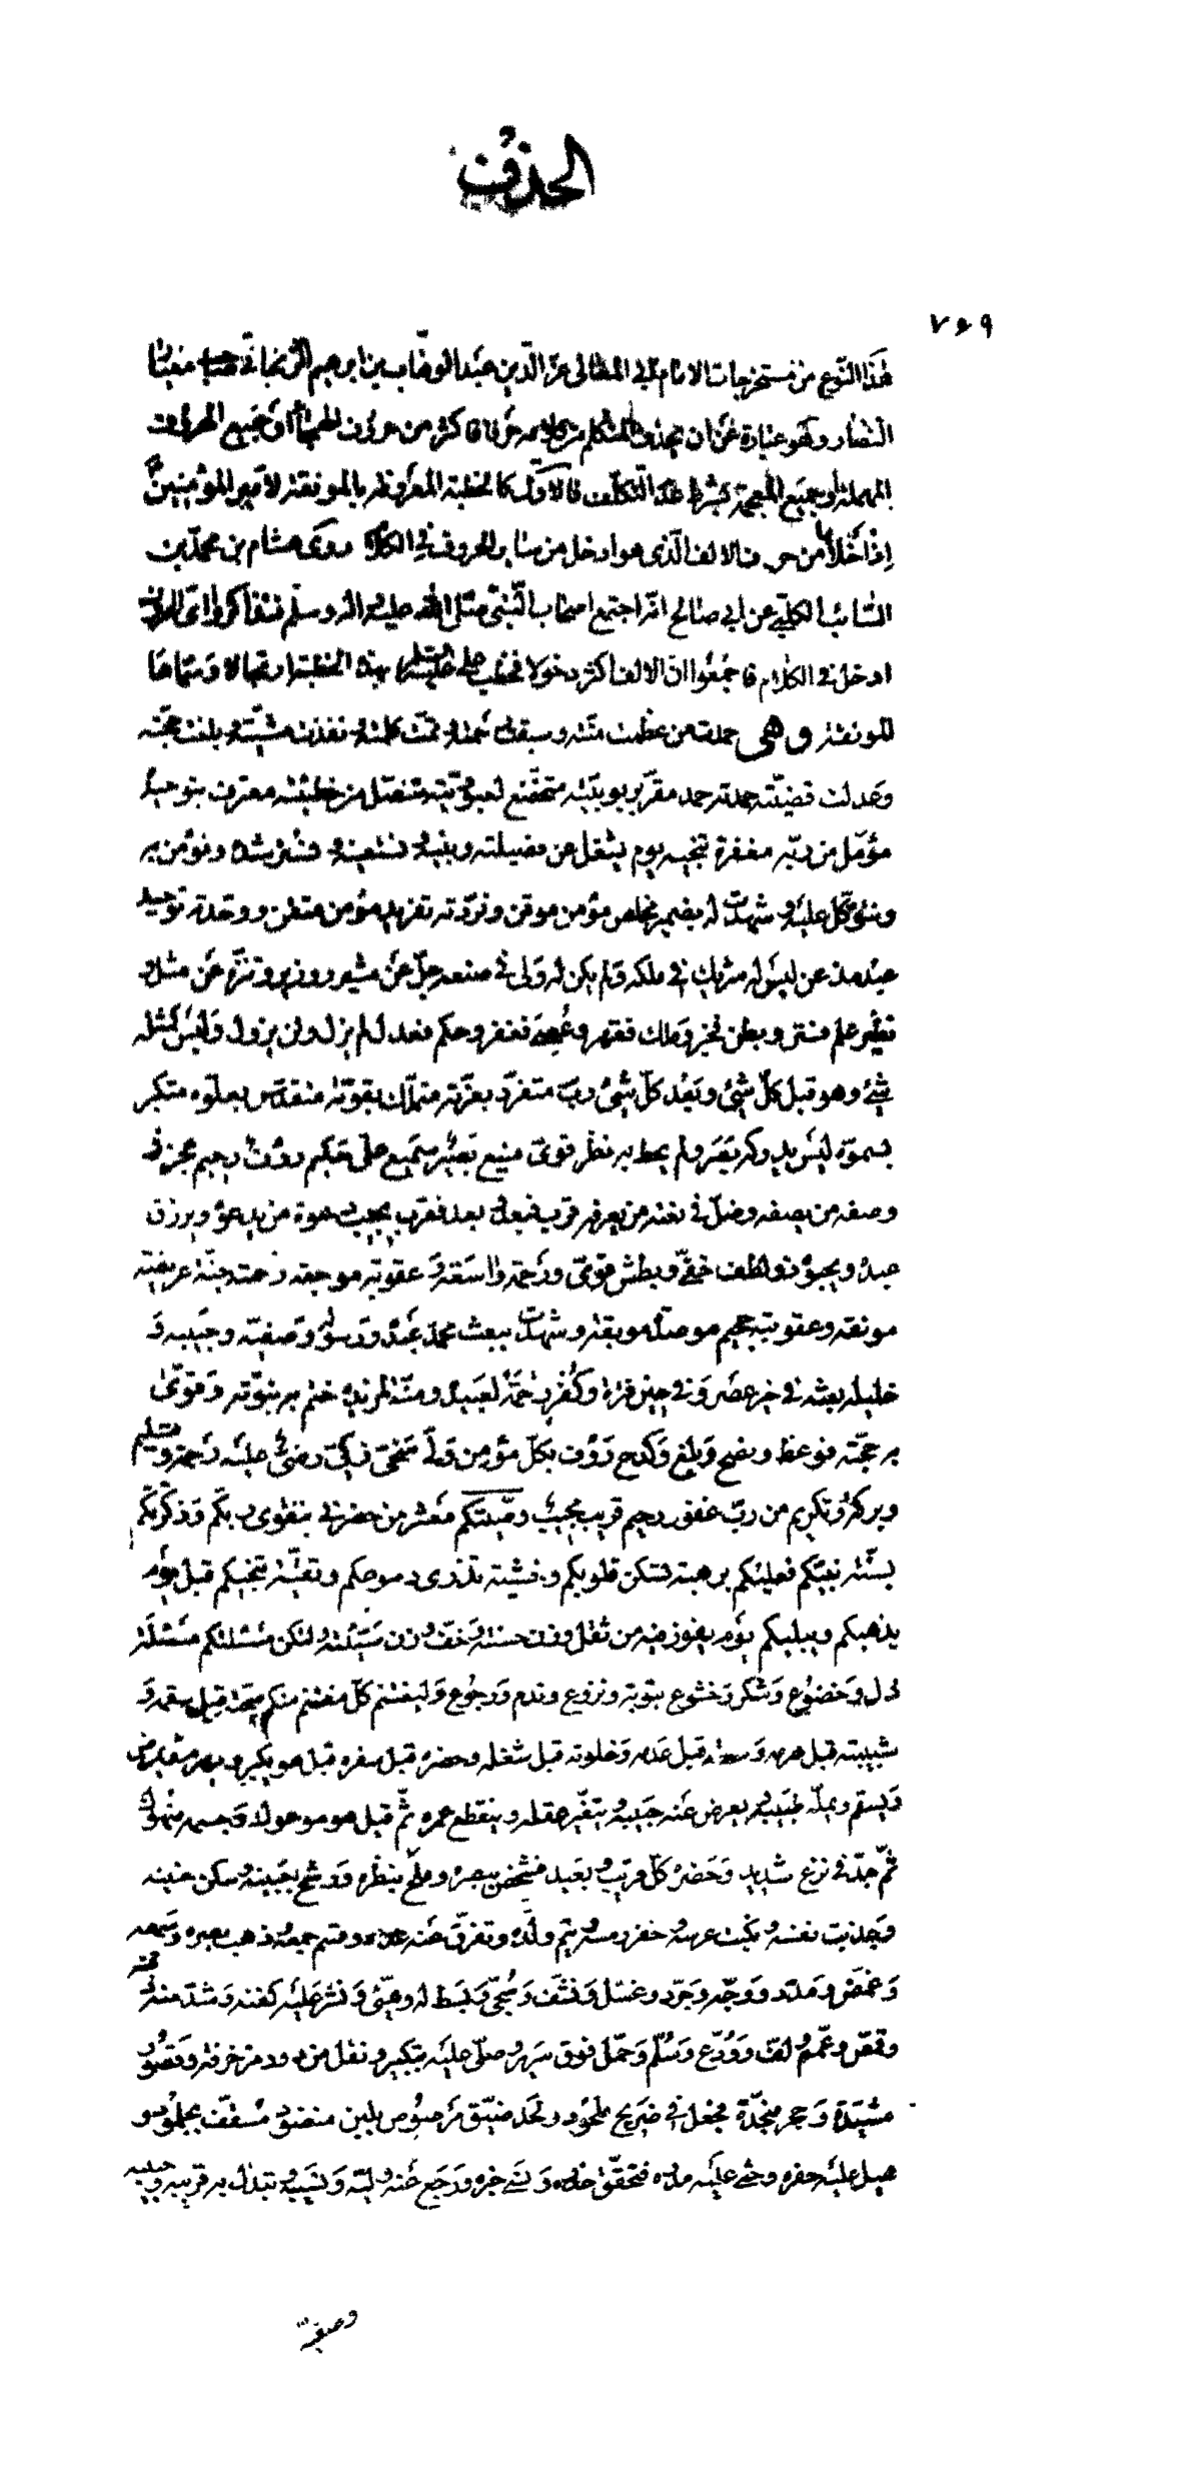 الحذف
٧٦٩
هذا النوع من مستخرجات الامام ابي المعالى عز الدين عبد الوهاب بن ابرهيم الزنجاني صاحب معيار
النظار وهو عبارة عن ان يحذف المتكلم من كلامه حرفا فاكثر من حروف الهجاء او جميع الحروف
المهملة او جميع المعجمة بشرط عدم التكلف فالاول كالخطبة المعروفة بالمونقة لامير المؤمنين
اذا خلاها من حرف الالف الذى هو ادخل من ساير الحروف في الكلام روى هشام بن محمد بن
السائب الكلبي عن ابي صالح انه اجتمع اصحاب النبي صلى الله عليه واله وسلم فتذاكروا اى الحروف
ادخل في الكلام فاجمعوا ان الالف اكثر دخولا فخطب علي عليه السلم بهذه الخطبة ارتجالا وسماها
المونقة وهى حمدت من عظمت منته وسبقت نعمته وتمت كلمته ونفذت مشيته وبلغت حجته
وعدلت قضيته حمدته حمد مقر بربوبيته متخضع لعبوديته متنصل من خطيئته معترف بتوحيده
مؤمل من ربه مغفرة تنجيه يوم يشغل عن فصيلته وبنيه ونستعينه ونسترشده ونؤمن به
ونتوكل عليه وشهدت له بضمير مخلص مؤمن موقن وفردته تفريد مؤمن متقن ووحدته توحيد
عبد مذعن ليس له شريك في ملكه ولم يكن له ولى في صنعه جل عن مشير ووزير وتنزه عن مثل و
نظير علم فستر وبطن فخبر وملك فقهر وعصى فغفر وحكم فعدل لم يزل ولن يزول وليس كمثله
شئ وهو قبل كل شئ وبعد كل شئ رب متفرد بعزته متملك بقوته متقدس بعلوه متكبر
بسموه ليس يدركه بصر ولم يحط به نظر قوى منيع بصير سميع على حكيم رؤف رحيم عجز في
وصفه من يصفه وضل في نعته من يعرفه قرب فبعد وبعد فقرب يجيب دعوة من يدعوه ويرزق
عبده ويحبوه ذو لطف خفي وبطش قوى ورحمة واسعة وعقوبة موجعة رحمته جنة عريضة
مونقة وعقوبته جحيم موصدة موبقة وشهدت ببعث محمد عبده ورسوله وصفيه وحبيبه و
خليله بعثه في خير عصر وفي حين فترة وكفر رحمة لعبيده ومنة لمزيده ختم به نبوته وقوى
به حجته فوعظ ونصح وبلغ وكدح رؤف بكل مؤمن ولي سخى زكى رضى عليه رحمة وتسليم
وبركة وتكريم من رب غفور رحيم قريب مجيب وصيتكم معشر من حضرنى بتقوى ربكم وذكرتكم
بسنة نبيكم فعليكم برهبة تسكن قلوبكم وخشية تذرى دموعكم وتقية تنجيكم قبل يوم
يذهلكم ويبليكم يوم يفوز فيه من ثقل وزن حسنته وخف وزن سيئته ولتكن مسئلتكم مسئلة
ذل وخضوع وشكر وخشوع بتوبة ونزوع وندم ورجوع وليغتنم كل مغتنم منكم صحته قبل سقمه و
شبيبته قبل هرمه وسعته قبل عدمه وخلوته قبل شغله وحضره قبل سفره قبل هو يكبر ويهرم ويمرض
ويسقم ويمله طبيبه ويعرض عنه حبيبه ويتغير عقله وينقطع عمره ثم قيل هو موعوك وجسمه منهوك
ثم جد في نزع شديد وحضره كل قريب وبعيد فشخص ببصره وطمح بنظره ورشح جبينه وسكن حنينه
وجذبت نفسه وبكت عرسه وحفر رمسه ويتم ولده وتفرق عنه عدده وقسم جمعه وذهب بصره وسمعه
وغمض ومدد ووجه وجرد وغسل ونشف وسجى وبسط له وهيئ ونشر عليه كفنه وشد منه ذقنه
وقمص وعمم ولف وودع وسلم وحمل فوق سرير وصلى عليه بتكبير ونقل من دور مزخرفة وقصور
مشيدة وحجر منجدة فجعل في ضريح ملحود ولحد ضيق مرصوص بلبن منضود مسقف بجلمود و
هيل عليه حفره وحثى عليه مدره فتحقق حذره ونسى خبره ورجع عنه وليه ونسيبه وتبدل به قريبه وحبيبه
وصفيه